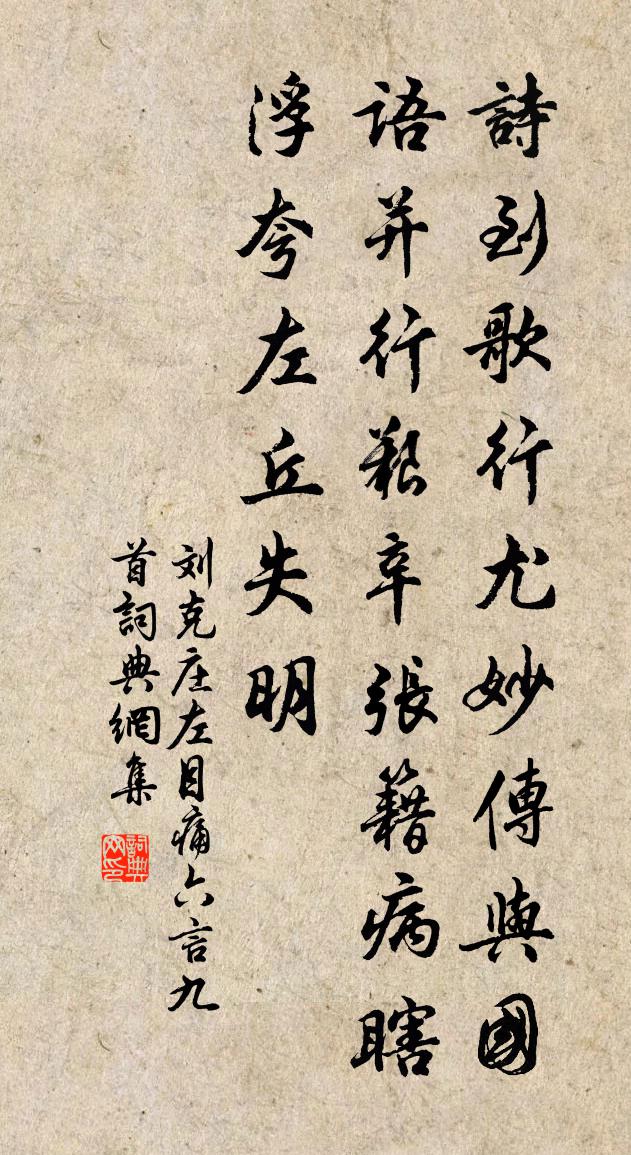 詩到歌行尤妙傳與國
語并行艱辛張籍病瞎
浮夸左丘失明
刘克庄左目痛六言九
首詞典網集
詞典網印